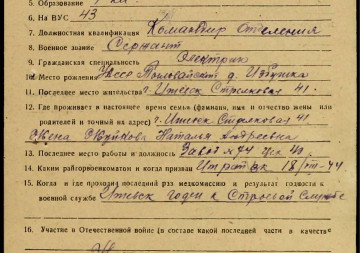 5. Образование
6. На ВУС 43
7. Должностная квалификация Командир отделения
8. Военное звание Сержант
9. Гражданская специальность Электрик
10. Место рождения д. Избушка
11. Последнее место жительства г. Ижевск Стрелковая 41.
12. Где проживает в настоящее время семья (фамилия, имя и отчество жены или
родителей и точный их адрес) г. Ижевск Стрелковая 41
Наталья Андреевна
13. Последнее место работы и должность Завод №74
14. Каким райгорвоенкоматом и когда призван 18/VIII-44
15. Когда и где проходил последний раз медкомиссию и результат годности к
военной службе Ижевск годен к строевой службе
16. Участие в Отечественной войне (в составе какой последней части в качестве